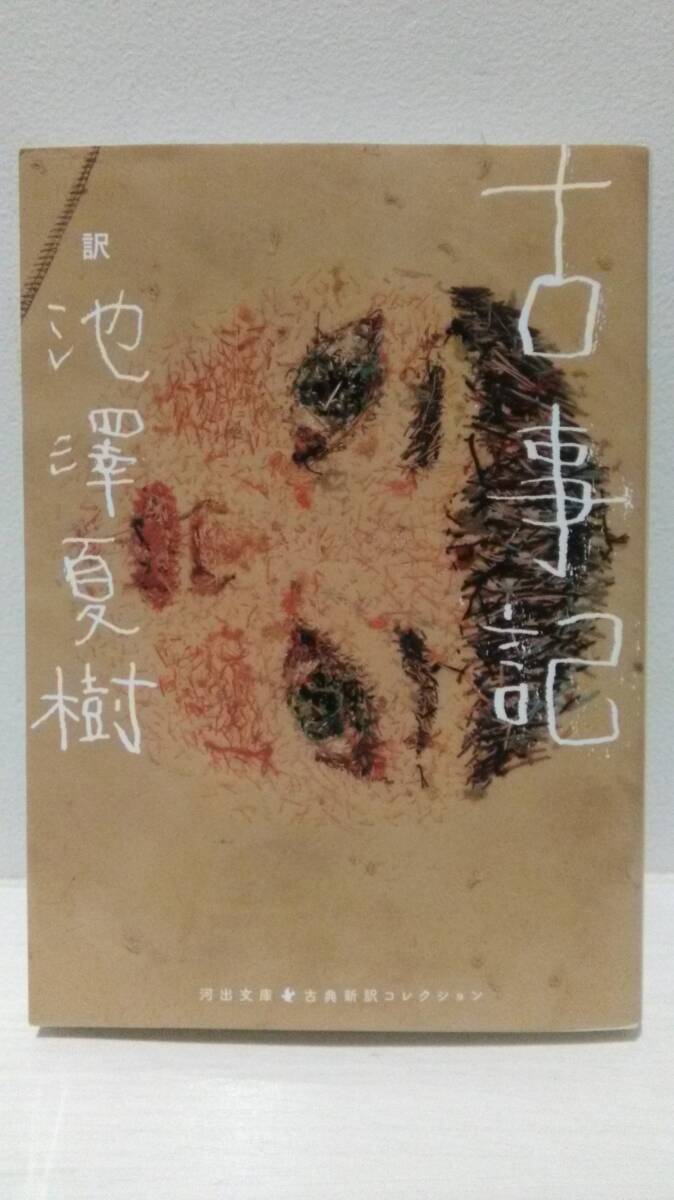 古事記
訳
池澤夏樹
河出文庫 古典新訳コレクション